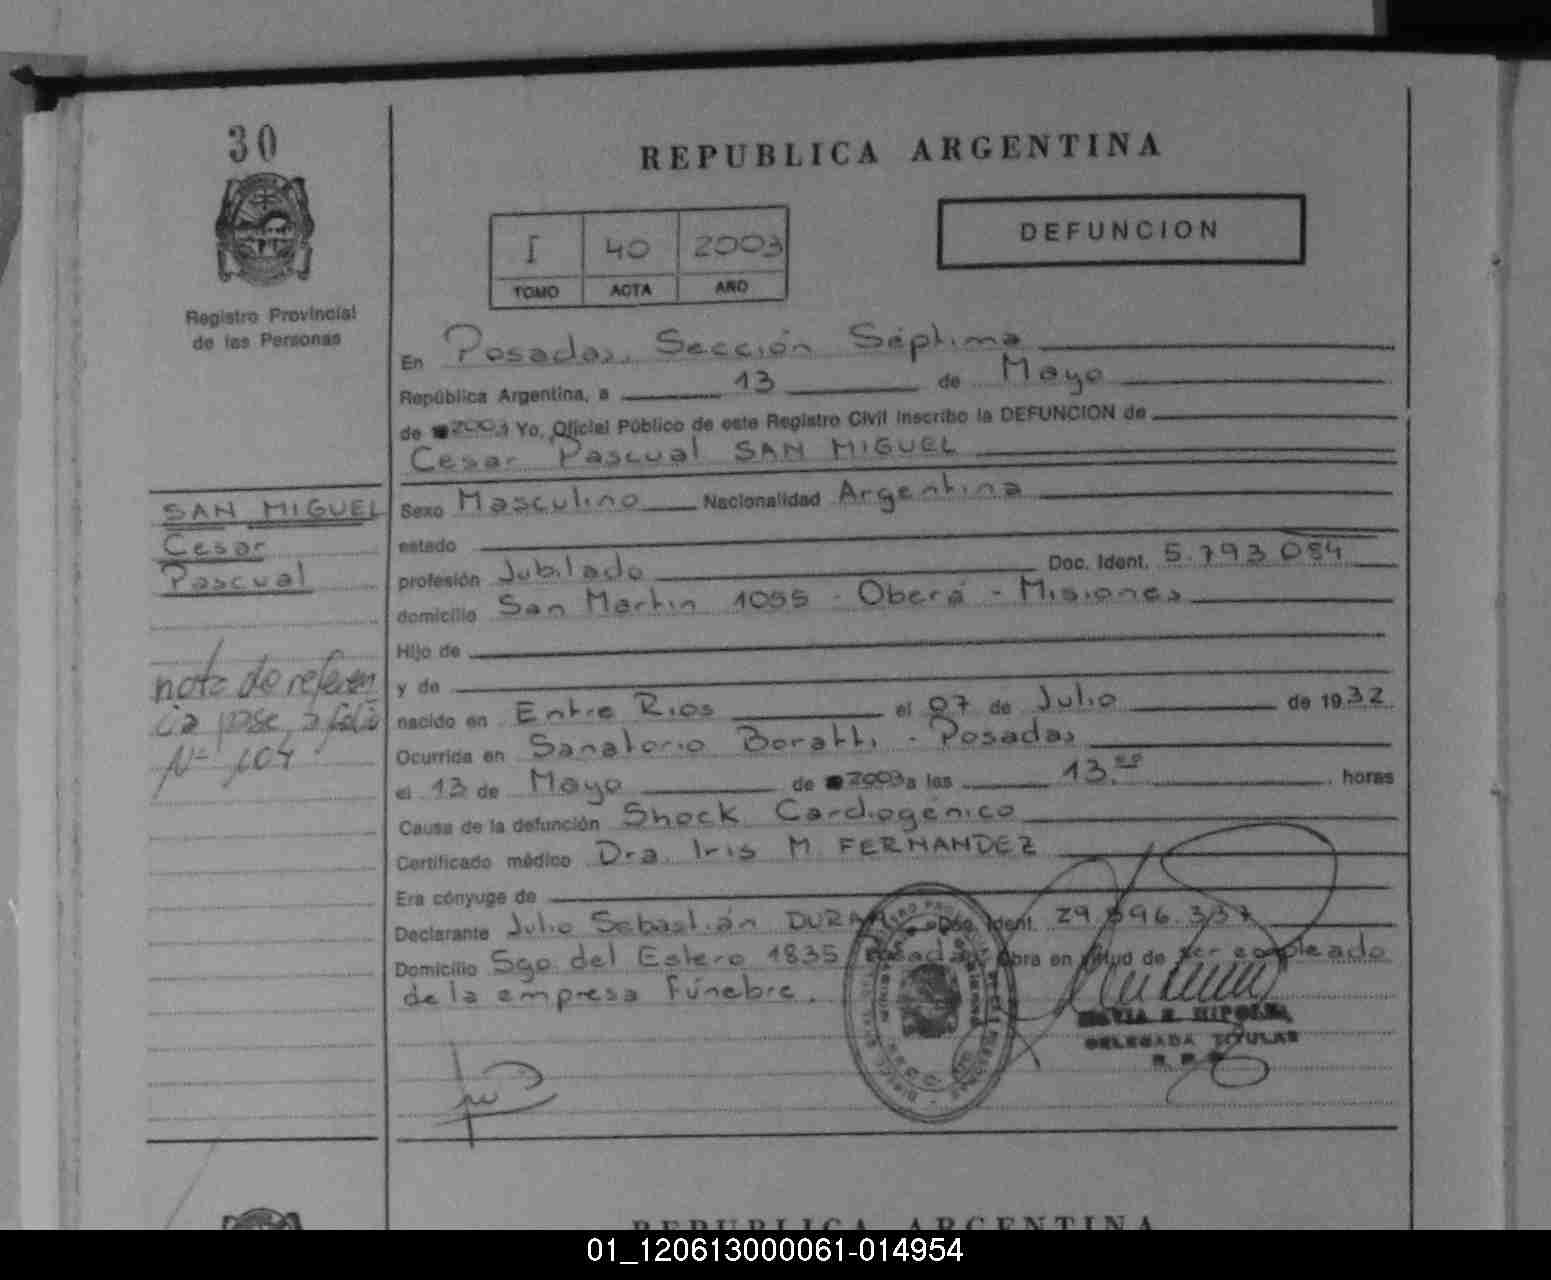 30
REPUBLICA ARGENTINA
DEFUNCION
I 40 2003
TOMO ACTA AÑO
Registro Provincial
de las Personas
En Posadas, Sección Séptima
República Argentina, a 13 de Mayo
de 2003 Yo, Oficial Público de este Registro Civil inscribo la DEFUNCION de
Cesar Pascual SAN MIGUEL
SAN MIGUEL
Cesar
Pascual
Sexo Masculino Nacionalidad Argentina
estado
profesión Jubilado Doc. Ident. 5.793.084
domicilio San Martin 1055 - Oberá - Misiones
Hijo de
y de
nota de referen
cia pase a folio
Nº 104
nacido en Entre Rios el 07 de Julio de 1932
Ocurrida en Sanatorio Boratti - Posadas
el 13 de Mayo de 2003 a las 13.00 horas
Causa de la defunción Shock Cardiogénico
Certificado médico Dra. Iris M. FERNANDEZ
Era cónyuge de
Declarante Julio Sebastián Doc. Ident.
Domicilio Sgo. del Estero 1835 Posadas Obra en virtud de ser empleado
de la empresa fúnebre.
DELEGADA TITULAR
REPUBLICA ARGENTINA
01_120613000061-014954